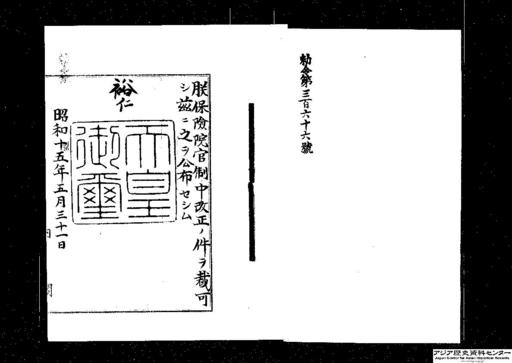 勅令第三百六十六號
朕保險院官制中改正ノ件ヲ裁可
シ茲ニ之ヲ公布セシム
裕仁
天皇
御璽
昭和十五年五月三十一日
アジア歴史資料センター
Japan Center for Asian Historical Records